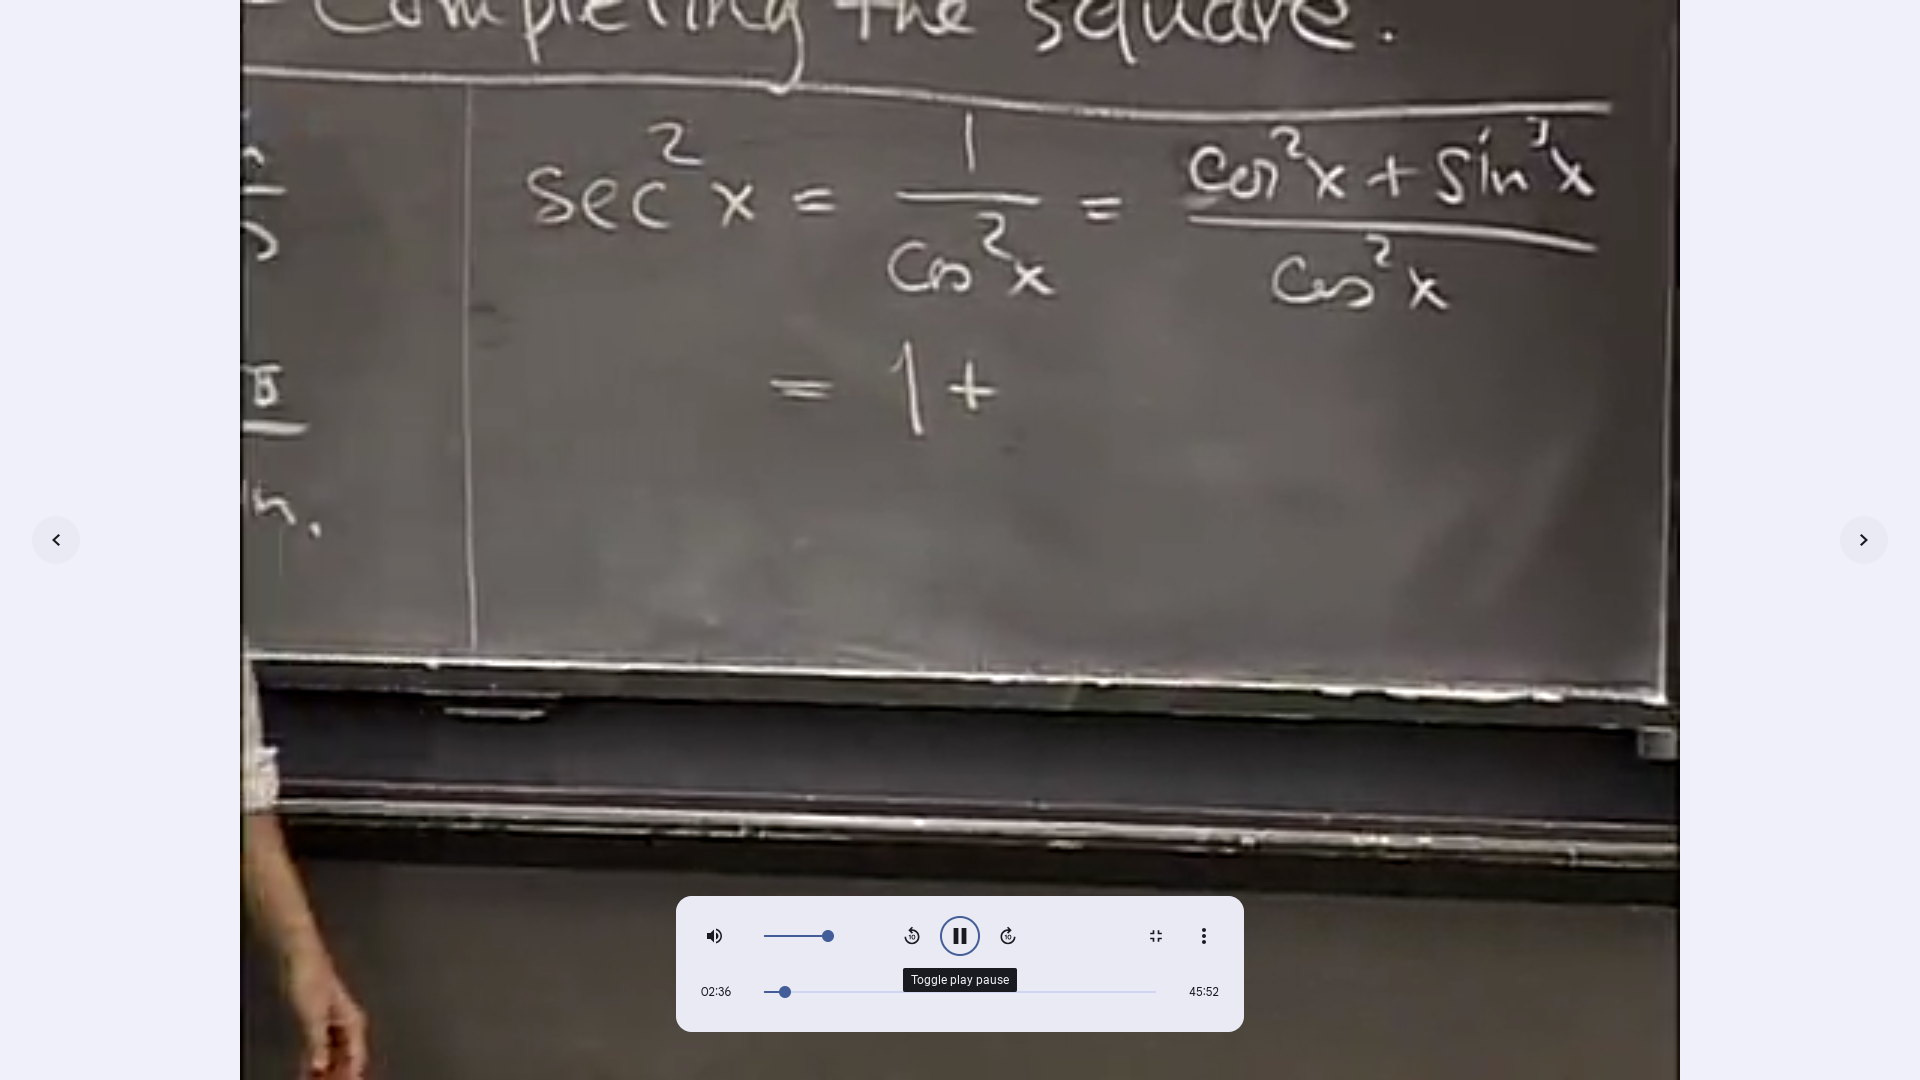 Completing the square.
sec²x = 1/cos²x = (cos²x + sin²x)/cos²x
= 1 +
n.
Toggle play pause
02:36
45:52